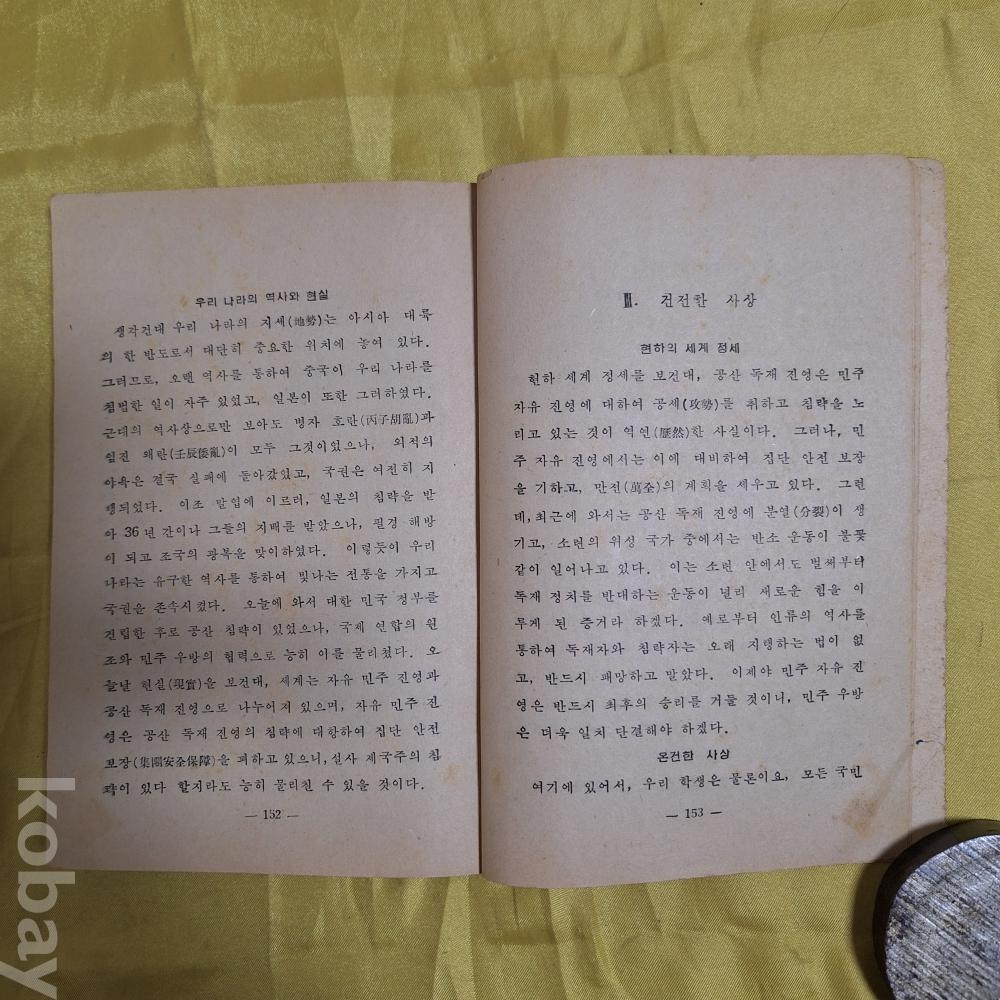 우리 나라의 역사와 현실
생각건대 우리 나라의 지세(地勢)는 아시아 대륙
의 한 반도로서 대단히 중요한 위치에 놓여 있다.
그러므로, 오랜 역사를 통하여 중국이 우리 나라를
침범한 일이 자주 있었고, 일본이 또한 그러하였다.
근대의 역사상으로만 보아도 병자 호란(丙子胡亂)과
임진 왜란(壬辰倭亂)이 모두 그것이었으나, 외적의
야욕은 결국 실패에 돌아갔었고, 국권은 여전히 지
탱되었다. 이조 말엽에 이르러, 일본의 침략을 받
아 36년 간이나 그들의 지배를 받았으나, 필경 해방
이 되고 조국의 광복을 맞이하였다. 이렇듯이 우리
나라는 유구한 역사를 통하여 빛나는 전통을 가지고
국권을 존속시켰다. 오늘에 와서 대한 민국 정부를
건립한 후로 공산 침략이 있었으나, 국제 연합의 원
조와 민주 우방의 협력으로 능히 이를 물리쳤다. 오
늘날 현실(現實)을 보건대, 세계는 자유 민주 진영과
공산 독재 진영으로 나누어져 있으며, 자유 민주 진
영은 공산 독재 진영의 침략에 대항하여 집단 안전
보장(集團安全保障)을 꾀하고 있으니, 설사 제국주의 침
략이 있다 할지라도 능히 물리칠 수 있을 것이다.
— 152 —
Ⅲ. 건전한 사상
현하의 세계 정세
현하 세계 정세를 보건대, 공산 독재 진영은 민주
자유 진영에 대하여 공세(攻勢)를 취하고 침략을 노
리고 있는 것이 역연(歷然)한 사실이다. 그러나, 민
주 자유 진영에서는 이에 대비하여 집단 안전 보장
을 기하고, 만전(萬全)의 계획을 세우고 있다. 그런
데, 최근에 와서는 공산 독재 진영에 분열(分裂)이 생
기고, 소련의 위성 국가 중에서는 반소 운동이 불꽃
같이 일어나고 있다. 이는 소련 안에서도 벌써부터
독재 정치를 반대하는 운동이 널리 새로운 힘을 이
루게 된 증거라 하겠다. 예로부터 인류의 역사를
통하여 독재자와 침략자는 오래 지탱하는 법이 없
고, 반드시 패망하고 말았다. 이제야 민주 자유 진
영은 반드시 최후의 승리를 거둘 것이니, 민주 우방
은 더욱 일치 단결해야 하겠다.
온건한 사상
여기에 있어서, 우리 학생은 물론이요, 모든 국민
— 153 —
kobay